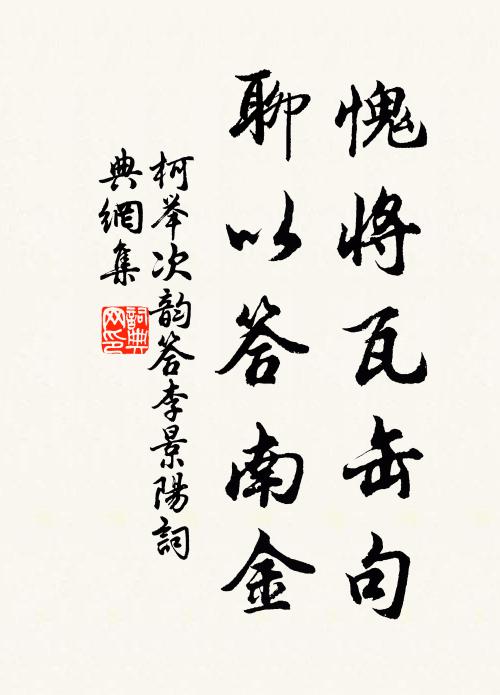 愧将瓦缶句
聊以答南金
柯举次韵答李景陽詞
典網集
詞典网印